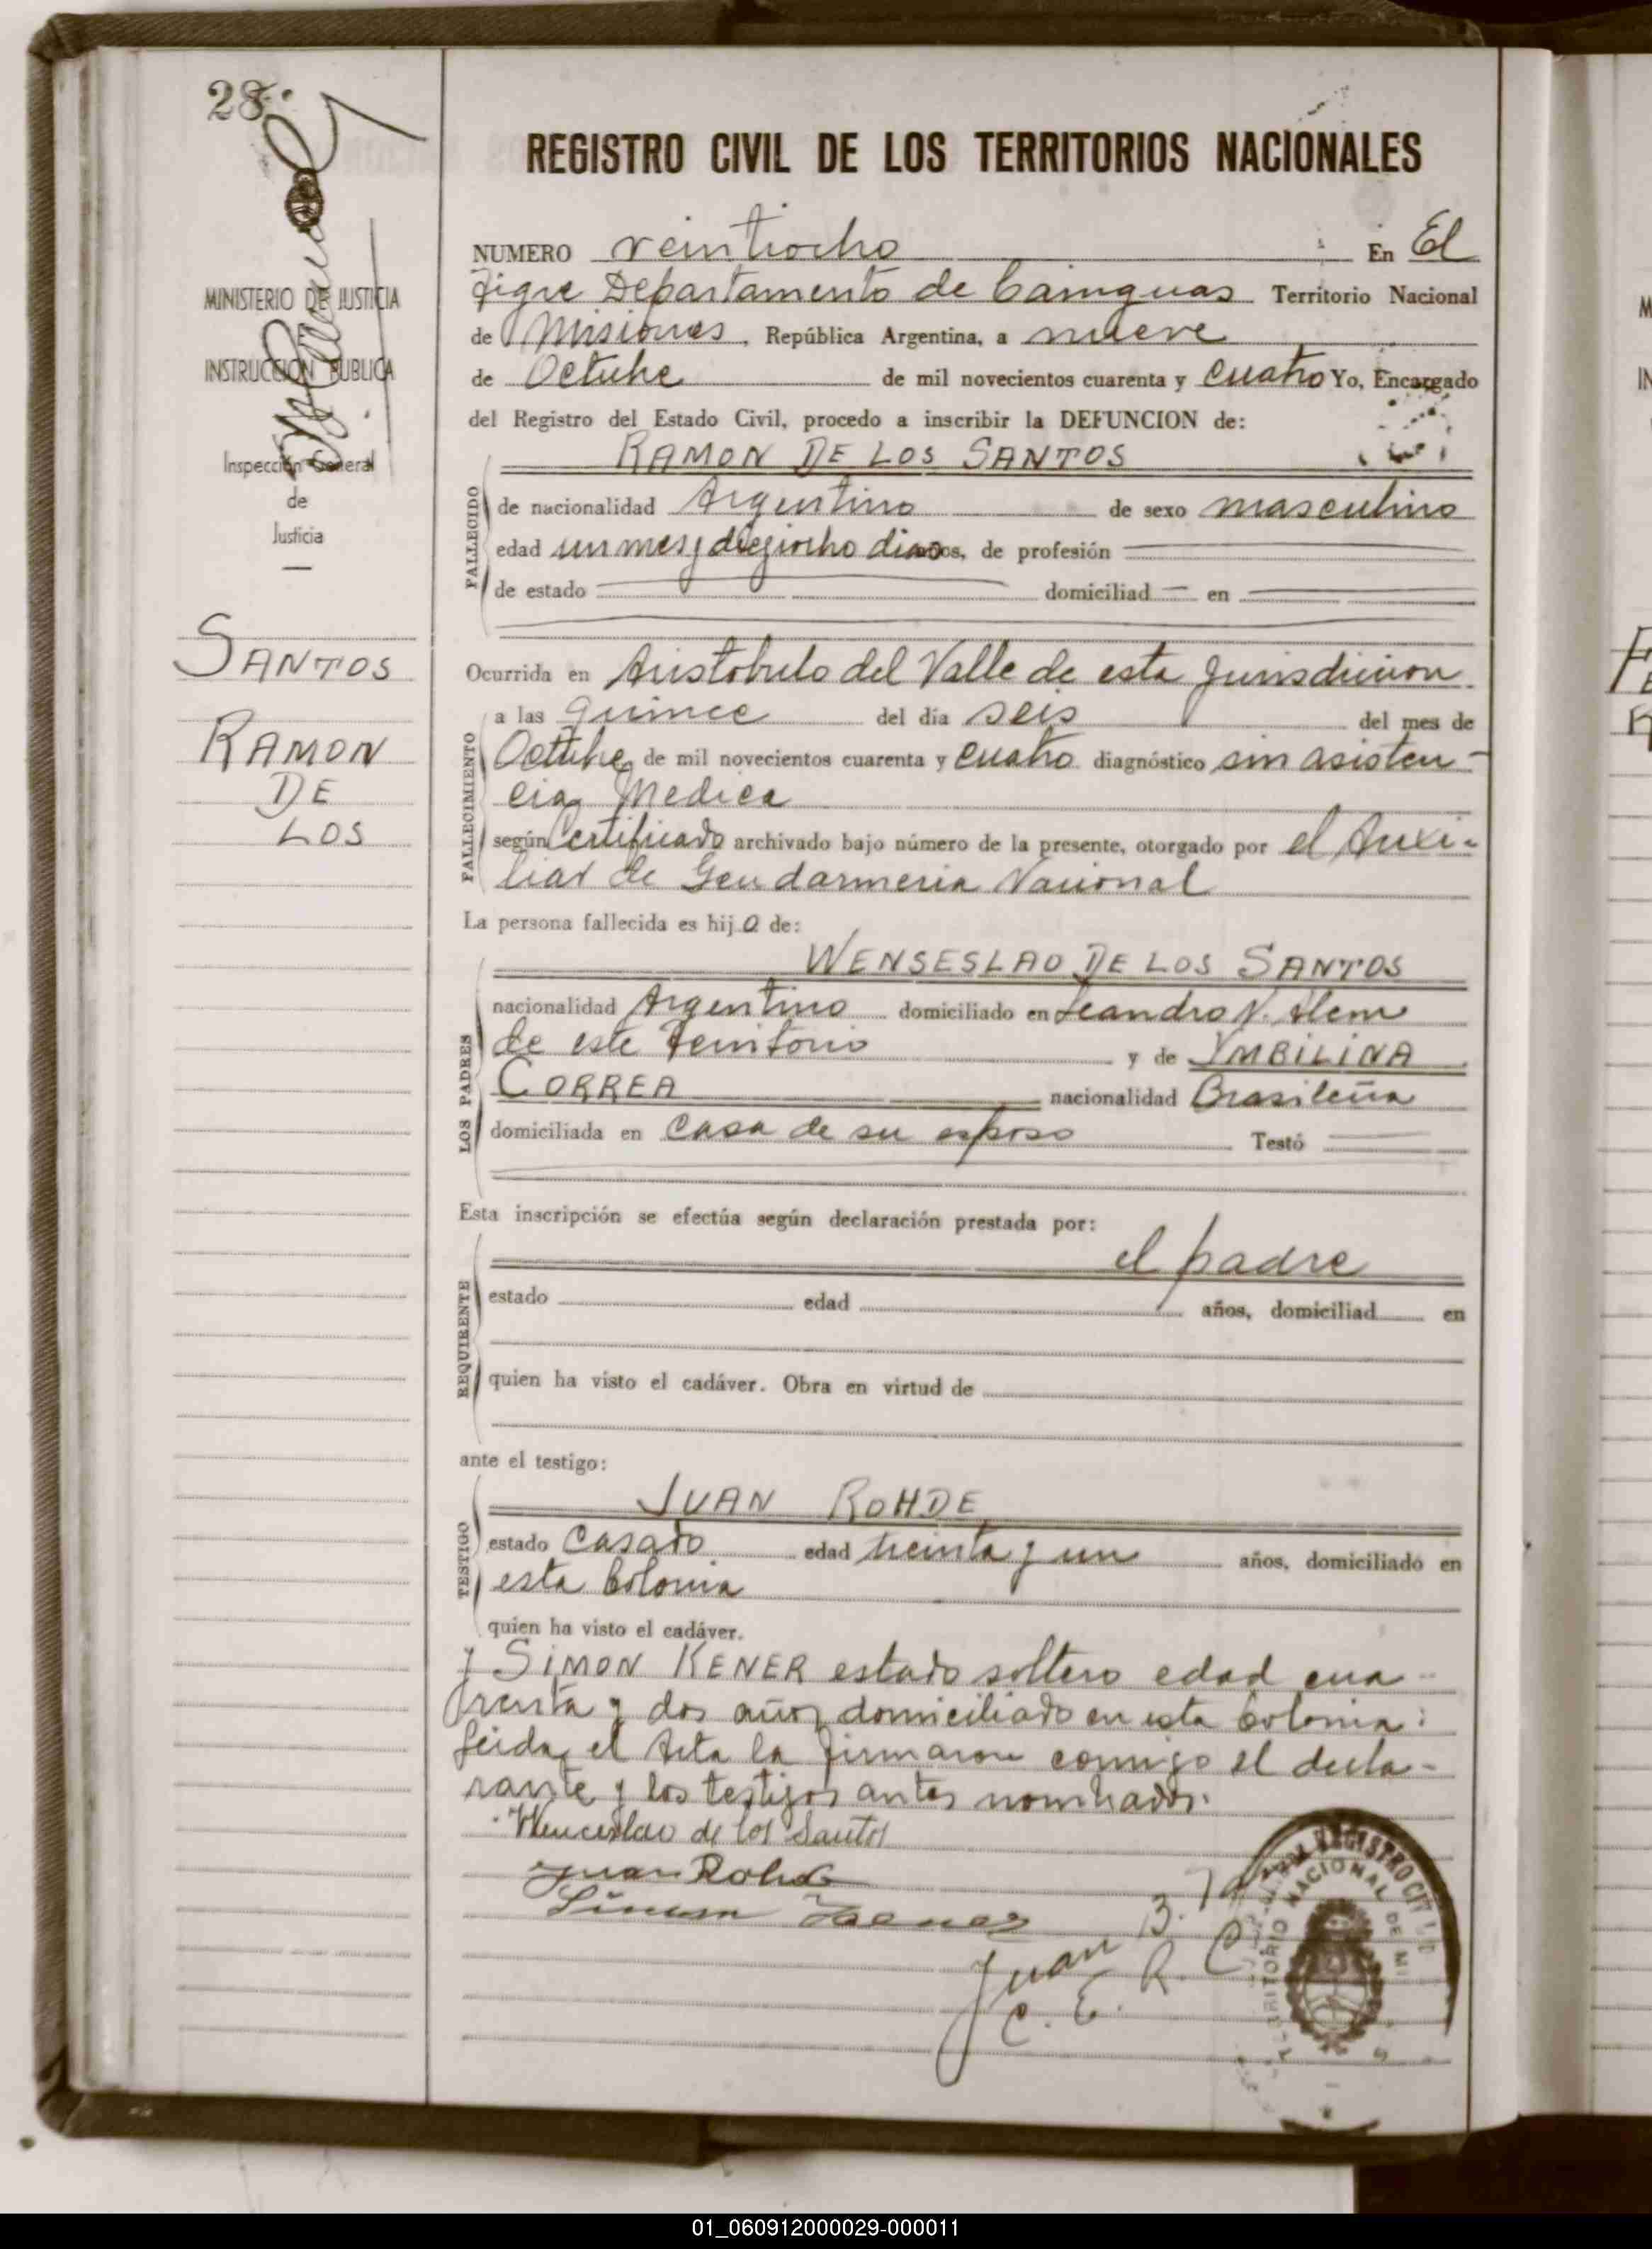 28
MINISTERIO DE JUSTICIA
INSTRUCCION PUBLICA
Inspección General
de
Justicia
SANTOS
RAMON
DE
LOS
REGISTRO CIVIL DE LOS TERRITORIOS NACIONALES
NUMERO veintiocho En El
Tigre Departamento de Cainguas Territorio Nacional
de Misiones, República Argentina, a nueve
de Octubre de mil novecientos cuarenta y cuatro Yo, Encargado
del Registro del Estado Civil, procedo a inscribir la DEFUNCION de:
RAMON DE LOS SANTOS
FALLECIDO
de nacionalidad Argentino de sexo masculino
edad un mes y diesiocho dias, de profesión
de estado domiciliad en
Ocurrida en Aristobulo del Valle de esta Jurisdicion
FALLECIMIENTO
a las quince del día seis del mes de
Octubre de mil novecientos cuarenta y cuatro diagnóstico sin asisten-
cia Medica
según Certificado archivado bajo número de la presente, otorgado por el Auxi-
liar de Gendarmeria Nacional
La persona fallecida es hijo de:
LOS PADRES
WENSESLAO DE LOS SANTOS
nacionalidad Argentino domiciliado en Leandro N. Alem
de este Territorio y de IMBILINA
CORREA nacionalidad Brasileña
domiciliada en Casa de su esposo Testó
Esta inscripción se efectúa según declaración prestada por:
REQUIRENTE
el padre
estado edad años, domiciliad en
quien ha visto el cadáver. Obra en virtud de
ante el testigo:
TESTIGO
JUAN ROHDE
estado Casado edad treinta y un años, domiciliado en
esta Colonia
quien ha visto el cadáver.
y SIMON KENER estado soltero edad cua-
renta y dos años domiciliado en esta colonia:
Leida el Acta la firmaron comigo el decla-
rante y los testigos antes nombrados.
Wenceslao de los Santos
Juan Rohde
Simon
Juan B.
C. E. R. C.
REGISTRO CIVIL
TERRITORIO NACIONAL DE MI
01_060912000029-000011